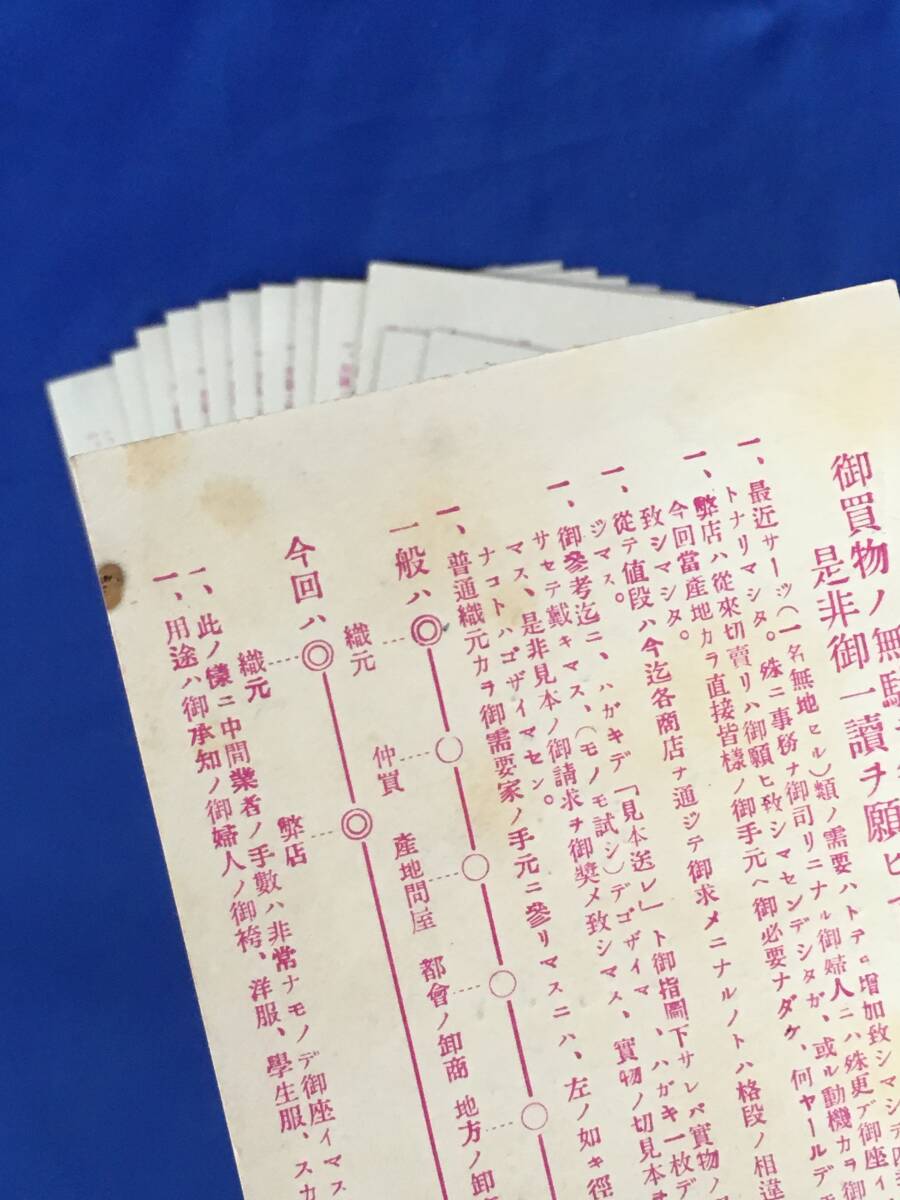 御買物ノ無駄
是非御一讀ヲ願ヒ
一、最近サージ(一名無地セル)類ノ需要ハトテモ增加致シマシテ四
トナリマシタ。殊ニ事務ヲ御司リニナル御婦人ニハ殊更デ御座イ
一、弊店ハ從來切賣リハ御願ヒ致シマセンデシタガ、或ル動機カラ御
今回當產地カラ直接皆樣ノ御手元ヘ御必要ナダケ、何ヤールデ
致シマシタ。
一、從テ値段ハ今迄各商店ヲ通ジテ御求メニナルノトハ格段ノ相違
ジマス。
一、御參考迄ニ、ハガキデ「見本送レ」ト御指圖下サレバ實物ノ
マス、(モノモ試シ)デゴザイマス、ハガキ一枚デ
サセテ戴キマス、是非見本ノ御請求ヲ御奬メ致シマス、實物ノ切見本ヲ
ナコトハゴザイマセン。
一、普通織元カラ御需要家ノ手元ニ參リマスニハ、左ノ如キ徑
一般ハ
織元
仲買
產地問屋
都會ノ卸商
地方ノ卸
今回ハ
織元
弊店
一、此ノ樣ニ中間業者ノ手數ハ非常ナモノデ御座イマス
一、用途ハ御承知ノ御婦人ノ御袴、洋服、學生服、スカ